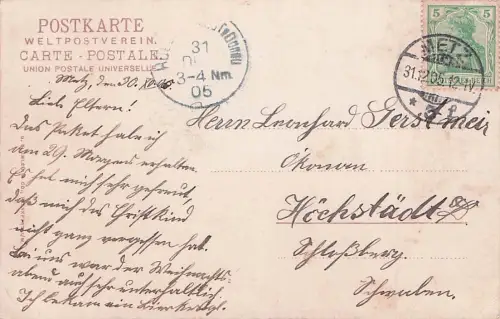 POSTKARTE
WELTPOSTVEREIN.
CARTE - POSTALE
UNION POSTALE UNIVERSELLE
Metz, den 30. XII. 05.
Liebe Eltern!
Das Paket habe ich
am 29. Morgens erhalten.
Es hat mich sehr gefreut,
daß mich das Christkind
nicht ganz vergessen hat.
Bei uns war der Weihnachts-
abend auch sehr unterhaltlich.
Ich bekam ein Bierkrügl.
31
3-4 Nm
05
5
5
METZ
31.12.05.12-1V
Herrn Leonhard Gerstmeir
Ökonom
Höchstädt a/D
Schloßberg.
Schwaben.